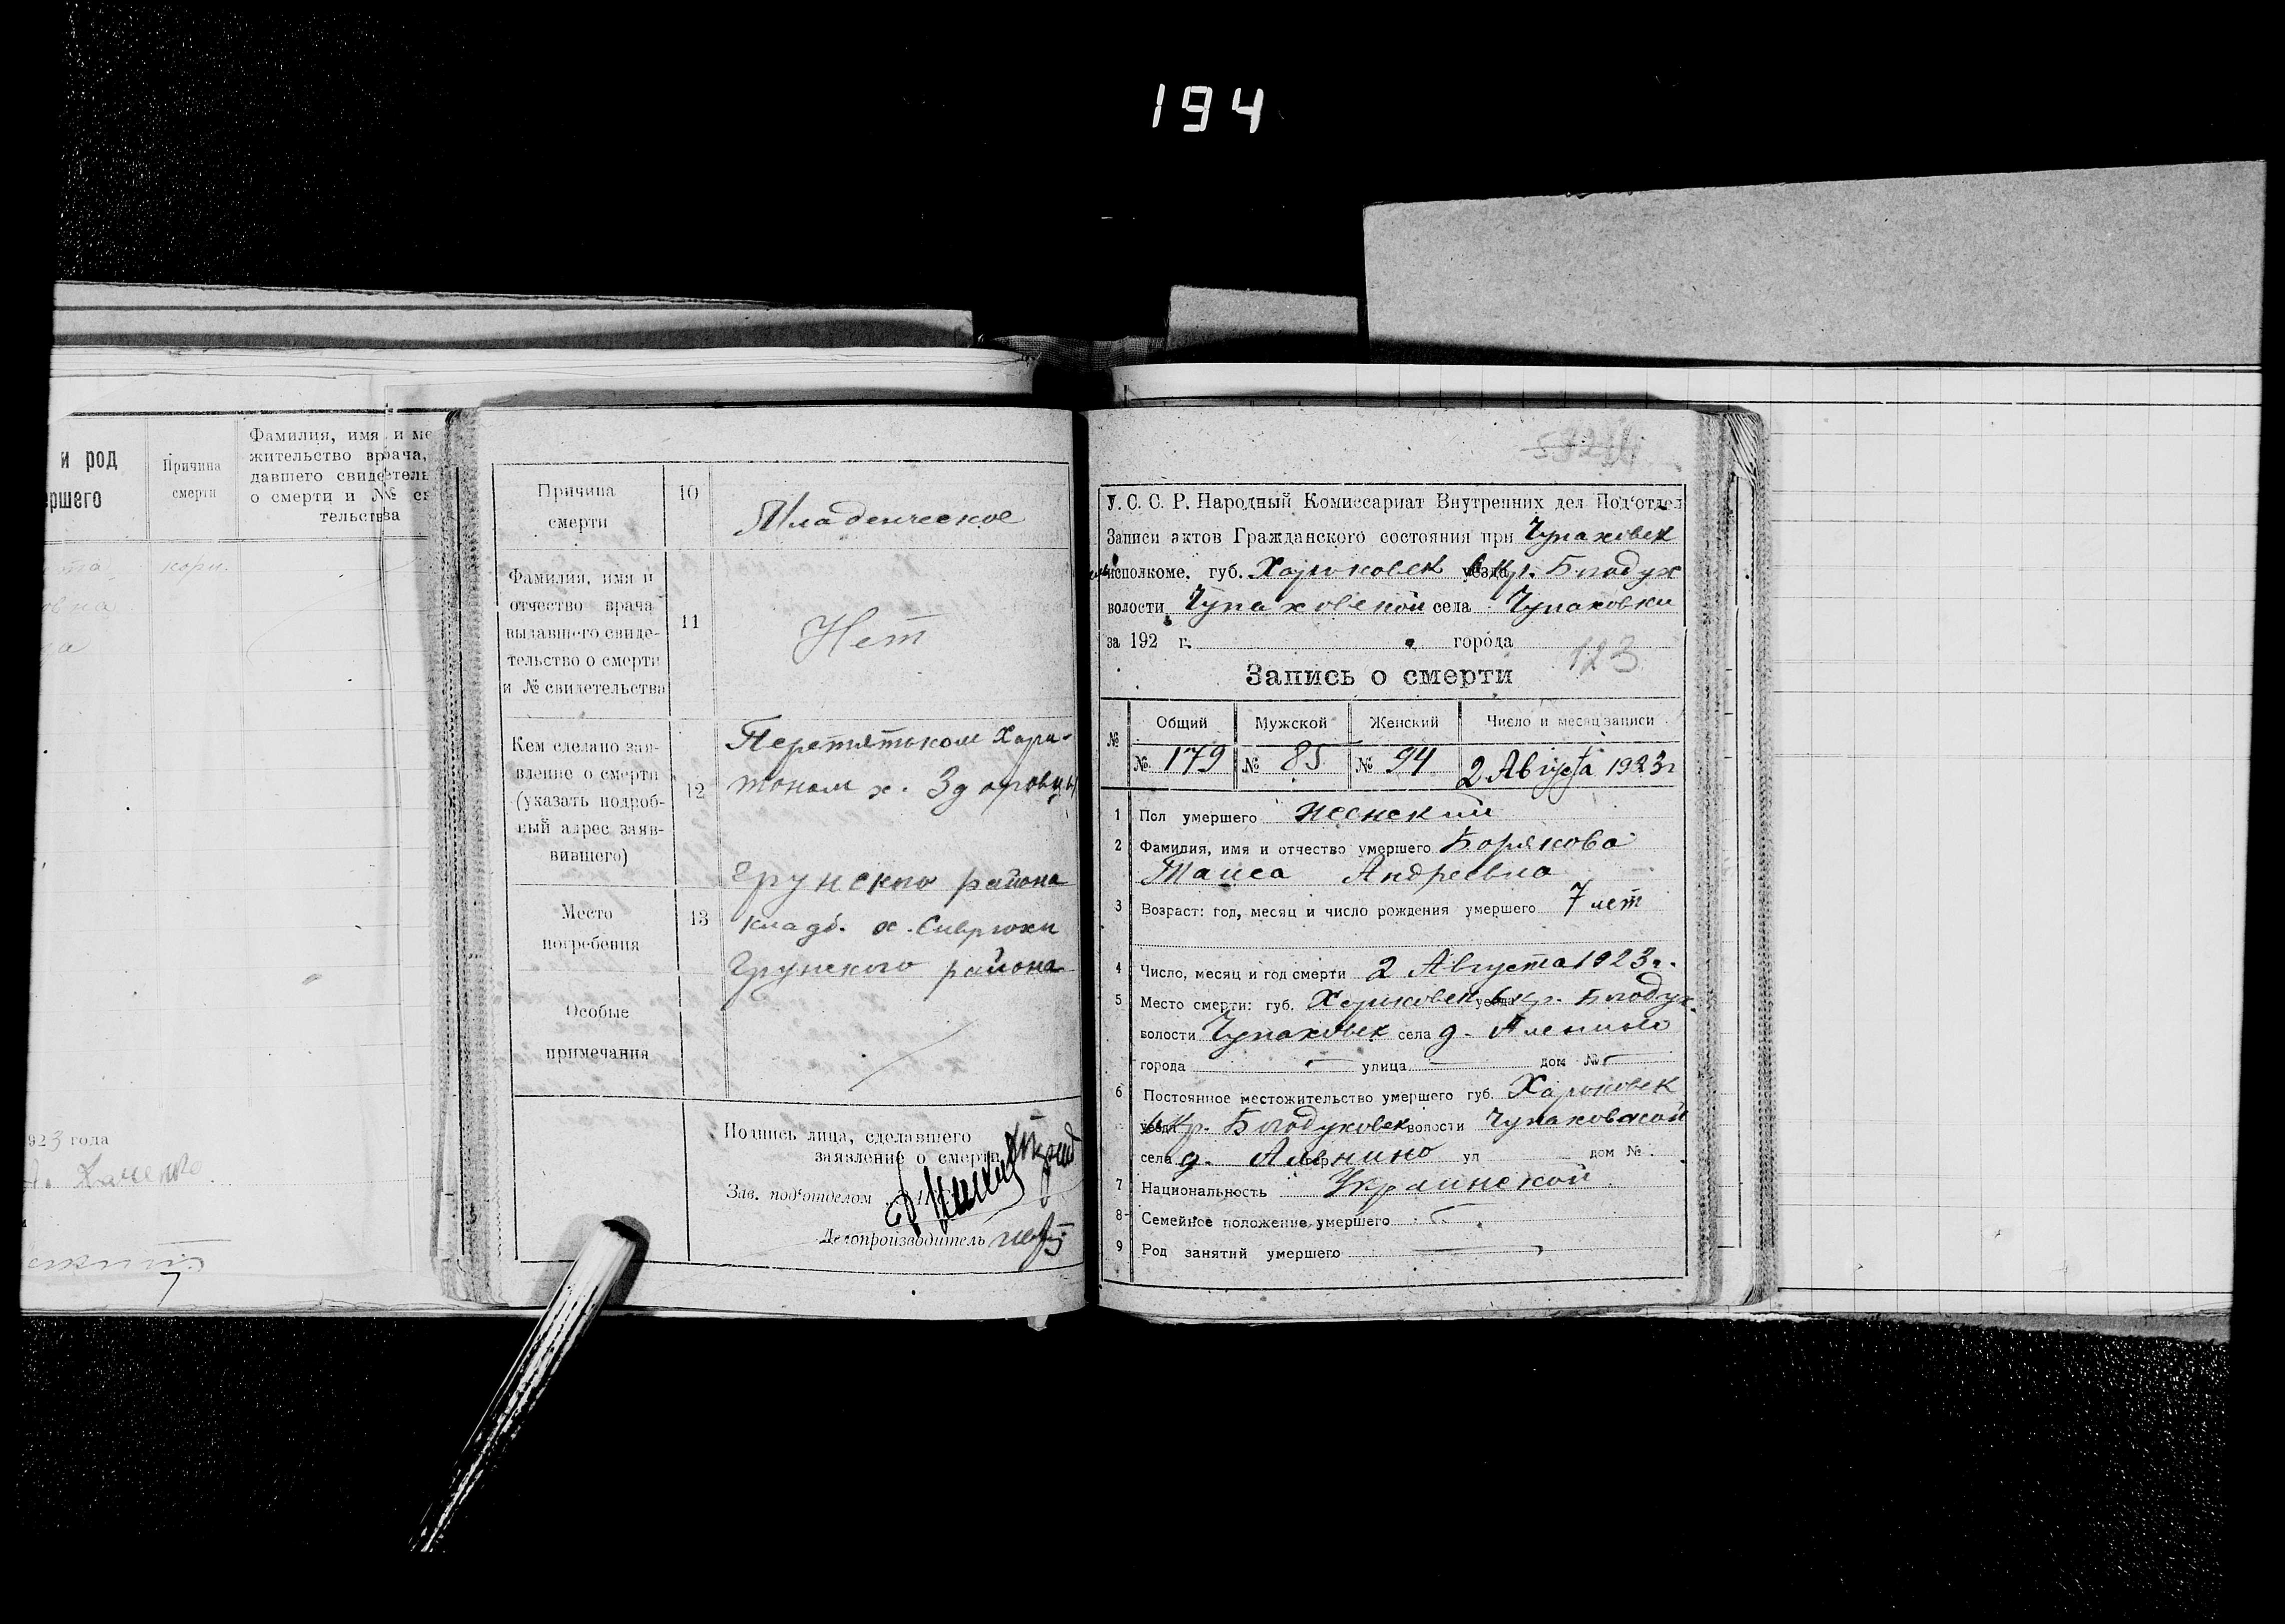 194
и род
ершего
Причина
смерти
Фамилия, имя и ме
жительство врача,
давшего свидетель
о смерти и № св
тельства
та
кори.
овна
923 года
Причина
смерти
10
Младенческое
Фамилия, имя и
отчество врача
выдавшего свиде-
тельство о смерти
и № свидетельства
11
Нет
Кем сделано зая-
вление о смерти
(указать подроб-
ный адрес заяв-
вившего)
12
Перетятьком Хари-
тоном х. Здоровцы
Грунского района
Место
погребения
13
кладб. х. Сиврюки
Грунского района
Особые
примечания
Подпись лица, сделавшего
заявление о смерти
Зав. под‘отделом
Делопроизводитель
У. С. С. Р. Народный Комиссариат Внутренних дел Под‘отдел
Записи актов Гражданского состояния при Чупаховск
исполкоме. губ. Харьковск уезда окр. Богодух
волости Чупаховской села Чупаховки
за 192 г. города
123
Запись о смерти
№ Общий Мужской Женский Число и месяц записи
№ 179 № 85 № 94 2 Августа 1923 г
1 Пол умершего женский
2 Фамилия, имя и отчество умершего Борякова
Таиса Андреевна
3 Возраст: год, месяц и число рождения умершего 7 лет
4 Число, месяц и год смерти 2 Августа 1923 г.
5 Место смерти: губ. Харьковск уезда окр. Богодух
волости Чупаховск села д. Аленино
города — улица — дом № —
6 Постоянное местожительство умершего губ. Харьковск
уезда окр. Богодуховск волости Чупаховской
села д. Аленино ул дом №
7 Национальность Украинской
8 Семейное положение умершего —
9 Род занятий умершего —